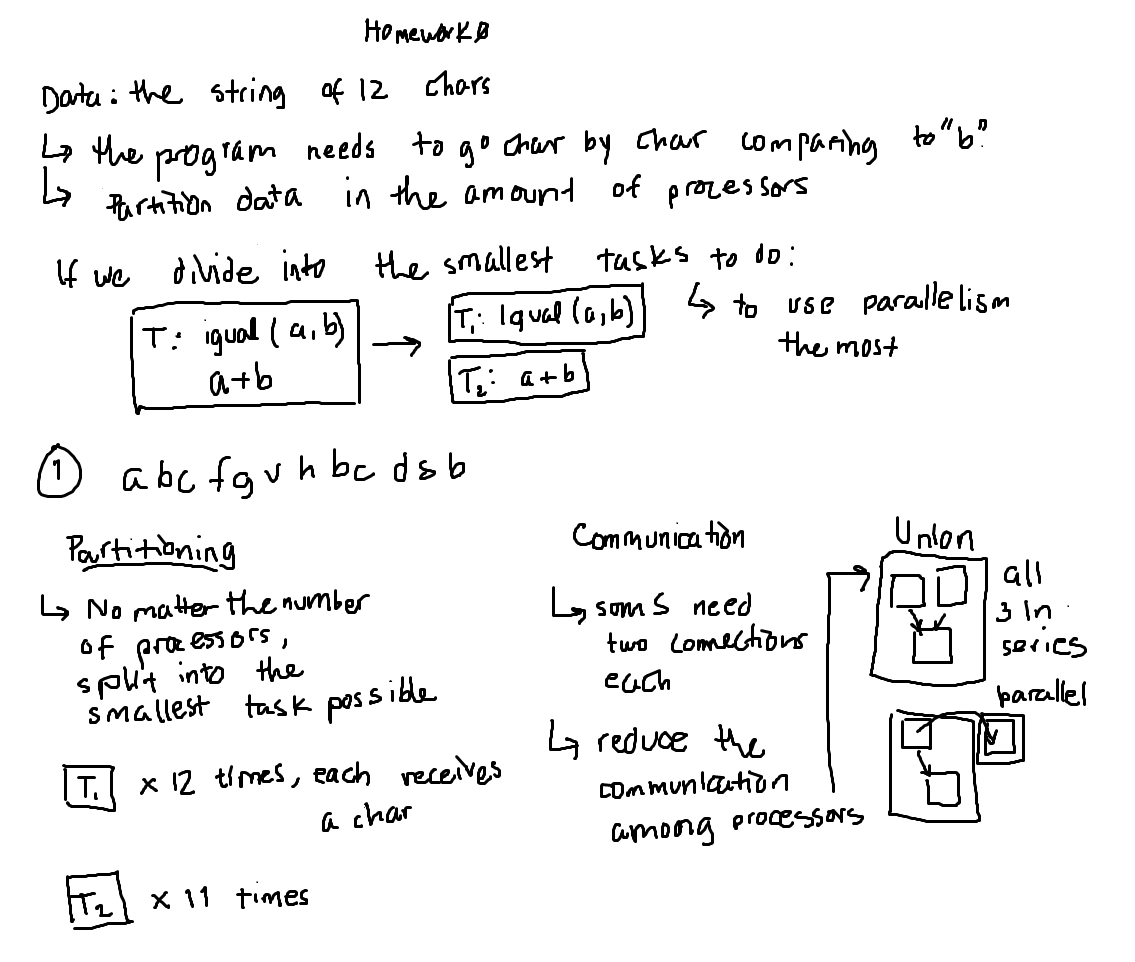 Homework 0
Data: the string of 12 chars
↳ the program needs to go char by char comparing to "b".
↳ Partition data in the amount of processors
If we divide into the smallest tasks to do:
↳ to use parallelism
the most
T: igual (a,b)
a+b
T₁: Igual (a,b)
T₂: a+b
① abc fg v h bc d s b
Partitioning
↳ No matter the number
of processors,
split into the
smallest task possible
T₁ x 12 times, each receives
a char
T₂ x 11 times
Communication
↳ soms need
two connections
each
↳ reduce the
communication
among processors
Union
all
3 in
series
parallel